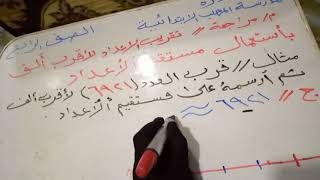 مدرسة المحلب الابتدائية الصف الرابع
م/ مراجعة // تقريب الأعداد لأقرب ألف
بأستعمال مستقيم الأعداد
مثال // قرب العدد (٦٩٢١) لأقرب ألف
ثم أرسمه على مستقيم الأعداد.
ج // ٦٩٢١ ≈